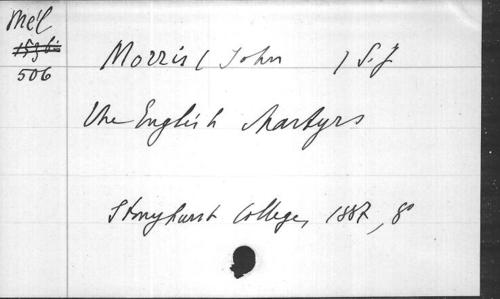 Mél
506
Morris ( John ) S.J
The English Martyrs
Stonyhurst College, 1887, 8°